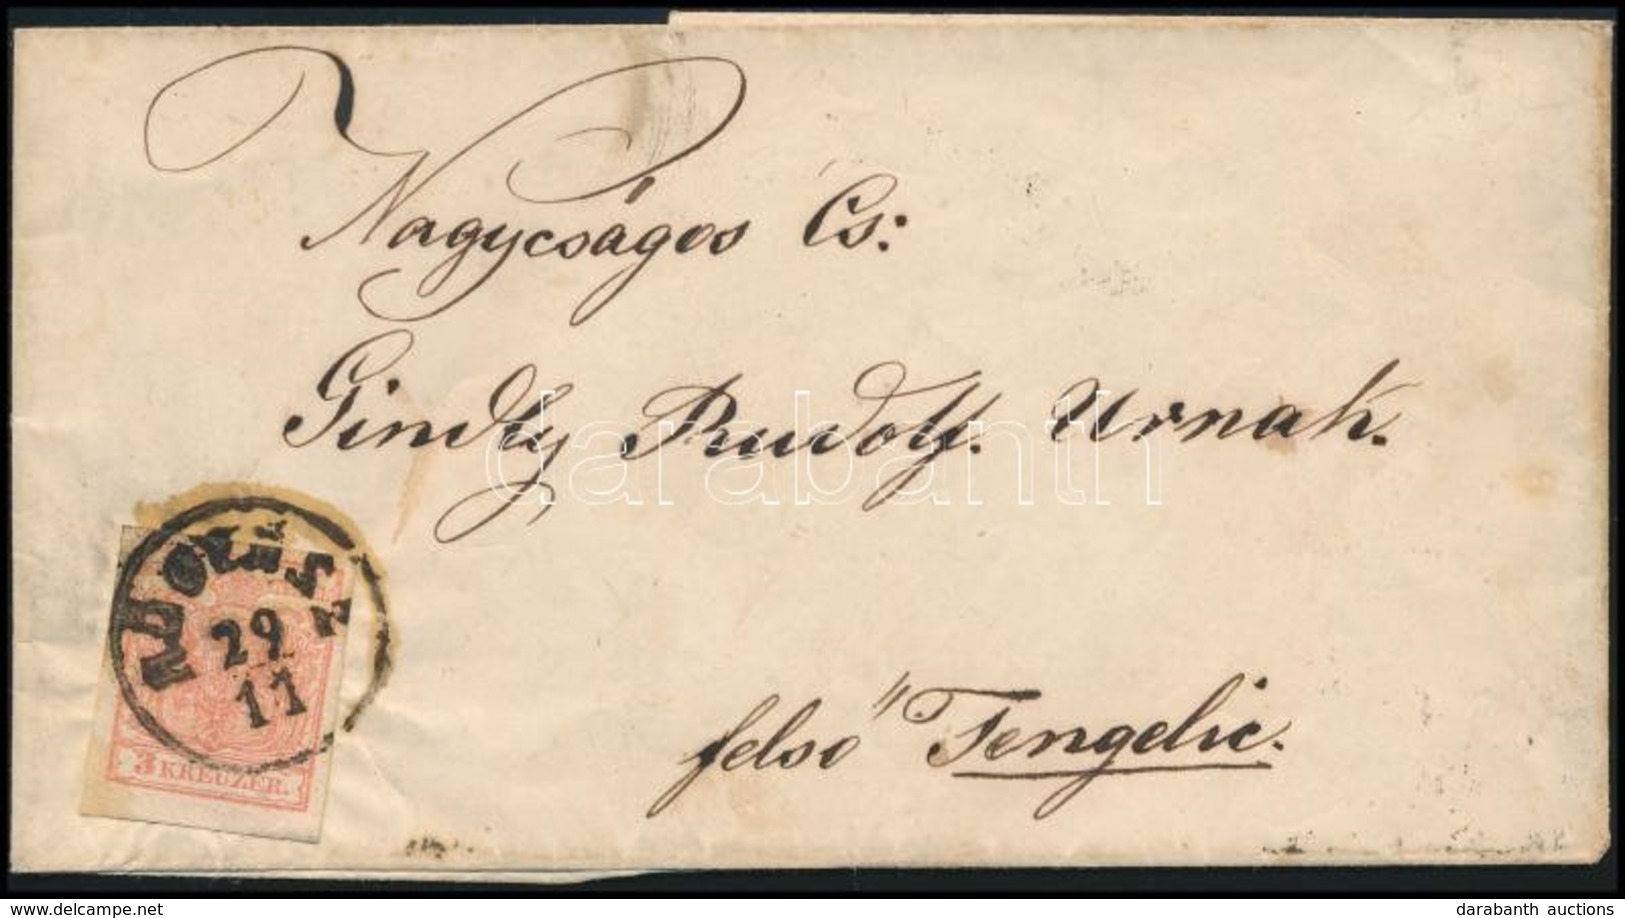 Nagycságos Cs:
Gindly Rudolf. Urnak.
darabanth
29
11
3 KREUZER.
felső Tengelic.
www.delcampe.net
darabanth auctions